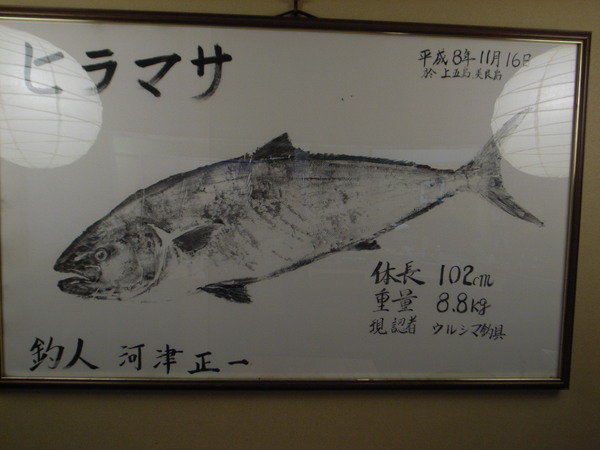 ヒラマサ
平成8年11月16日
於 上五島、美良島
体長 102cm
重量 8.8kg
現認者 ウルシマ釣具
釣人 河津正一